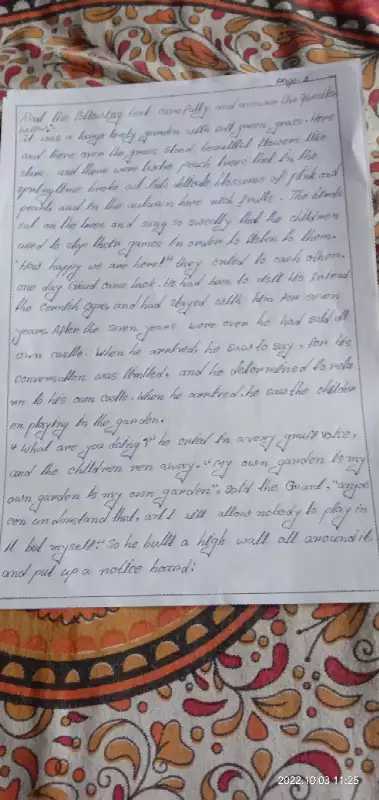 Page-1
Read the following text carefully and answer the question
below:-
It was a large lovely garden with soft green grass. Here
and there over the grass stood beautiful flowers like
stars, and there were twelve peach trees that in the
springtime broke out into delicate blossoms of pink and
pearl, and in the autumn bore rich fruits. The birds
sat on the trees and sang so sweetly that the children
used to stop their games in order to listen to them.
"How happy we are here!" they cried to each other.
one day Giant came back. He had been to visit his friend
the cornish ogre, and had stayed with him for seven
years. After the seven years were over he had said all
own castle. When he arrived, he was to say, for his
conversation was limited, and he determined to retu
rn to his own castle. When he arrived, he saw the children
en playing in the garden.
"What are you doing?" he cried in a very gruff voice,
and the children ran away. "My own garden is my
own garden is my own garden", said the Giant, "anyone
can understand that, and I will allow nobody to play in
it but myself." So he built a high wall all around it
and put up a notice board:
2022.10.03 11:25